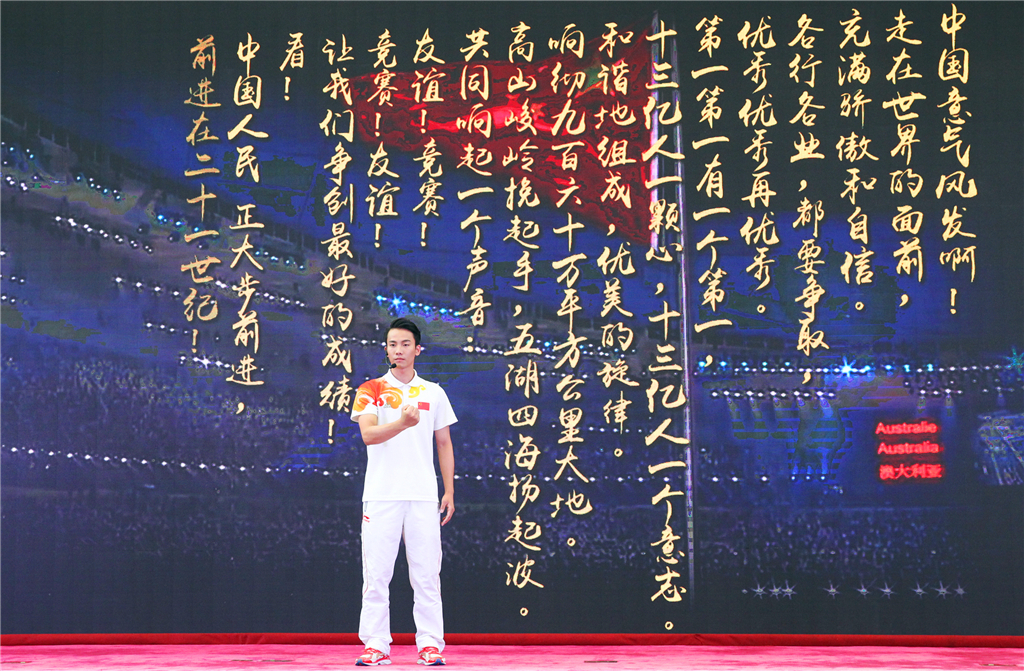 中国意气风发啊！
走在世界的面前，
充满骄傲和自信。
各行各业，都要争取，
优秀优秀再优秀。
第一第一有一个第一，
十三亿人一颗心，十三亿人一个意志。
和谐地组成，优美的旋律。
响彻九百六十万平方公里大地。
高山峻岭挽起手，五湖四海扬起波。
共同响起一个声音：
友谊！竞赛！
竞赛！友谊！
让我们争创最好的成绩！
看！
中国人民 正大步前进，
前进在二十一世纪！
Australie
Australia
澳大利亚